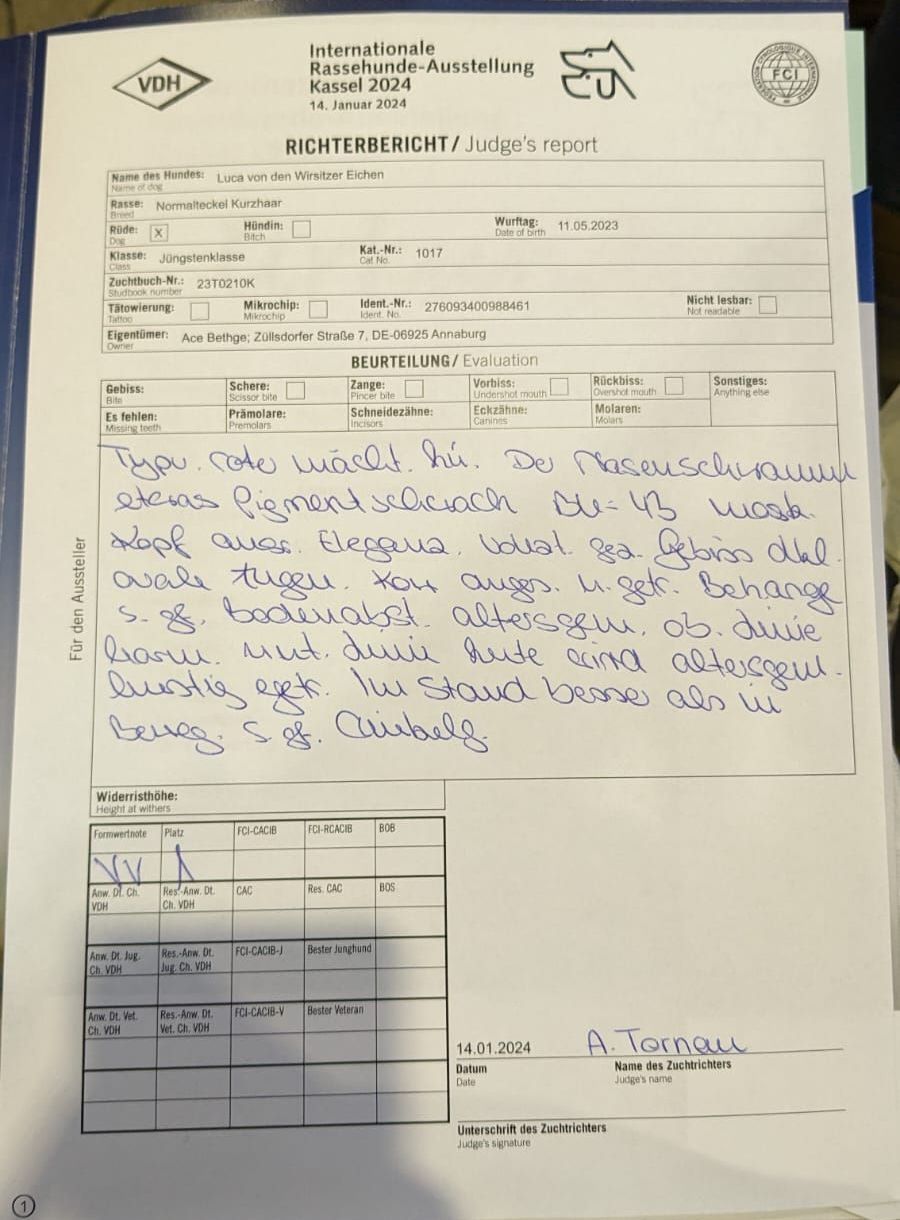 VDH
Internationale
Rassehunde-Ausstellung
Kassel 2024
14. Januar 2024
FEDERATION CYNOLOGIQUE INTERNATIONALE
FCI
RICHTERBERICHT / Judge's report
Name des Hundes: Luca von den Wirsitzer Eichen
Name of dog
Rasse: Normalteckel Kurzhaar
Breed
Rüde: X Hündin: Wurftag: 11.05.2023
Dog Bitch Date of birth
Klasse: Jüngstenklasse Kat.-Nr.: 1017
Class Cat No.
Zuchtbuch-Nr.: 23T0210K
Studbook number
Tätowierung: Mikrochip: Ident.-Nr.: 276093400988461 Nicht lesbar:
Tattoo Mikrochip Ident. No. Not readable
Eigentümer: Ace Bethge; Züllsdorfer Straße 7, DE-06925 Annaburg
Owner
BEURTEILUNG / Evaluation
Gebiss: Schere: Zange: Vorbiss: Rückbiss: Sonstiges:
Bite Scissor bite Pincer bite Undershot mouth Overshot mouth Anything else
Es fehlen: Prämolare: Schneidezähne: Eckzähne: Molaren:
Missing teeth Premolars Incisors Canines Molars
Für den Aussteller
Typv. rote mächt. Der Nasenschwamm
etwas Pigmentschwach BU=43 mask.
Kopf Eleganz. Vollst. Gebiss dkl.
ovale Augen. u. getr. Behänge
s. gt. Bodenabst. altersgem. ob. Linie
harm. unt. Linie Rute wird altersgem.
lustig getr. Im Stand besser als in
Beweg. s. gt.
Widerristhöhe:
Height at withers
Formwertnote Platz FCI-CACIB FCI-RCACIB BOB
VV 1
Anw. Dt. Ch. VDH Res.-Anw. Dt. Ch. VDH CAC Res. CAC BOS
Anw. Dt. Jug. Ch. VDH Res.-Anw. Dt. Jug. Ch. VDH FCI-CACIB-J Bester Junghund
Anw. Dt. Vet. Ch. VDH Res.-Anw. Dt. Vet. Ch. VDH FCI-CACIB-V Bester Veteran
14.01.2024 A. Tornau
Datum Name des Zuchtrichters
Date Judge's name
Unterschrift des Zuchtrichters
Judge's signature
1